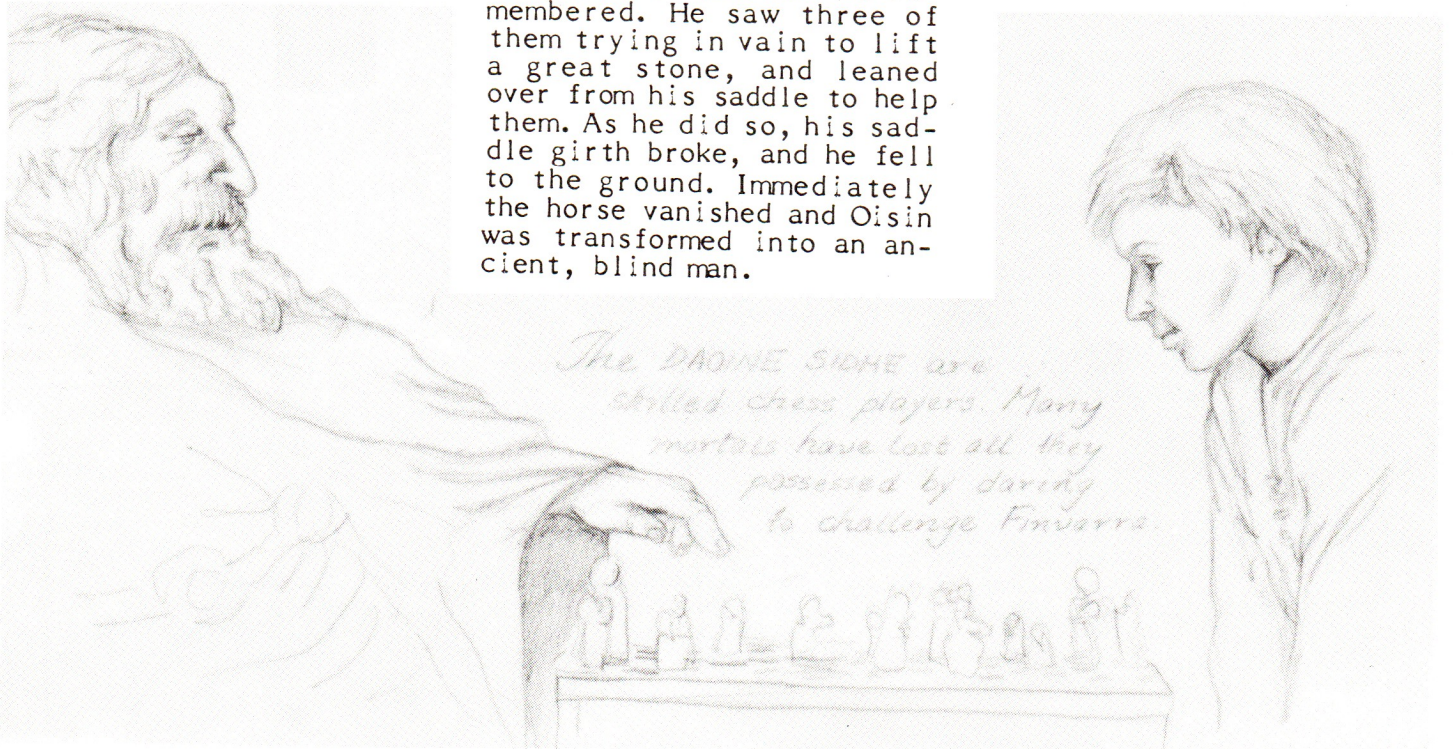 membered. He saw three of
them trying in vain to lift
a great stone, and leaned
over from his saddle to help
them. As he did so, his sad-
dle girth broke, and he fell
to the ground. Immediately
the horse vanished and Oisin
was transformed into an an-
cient, blind man.
The DAOINE SIDHE are
skilled chess players. Many
mortals have lost all they
possessed by daring
to challenge Finvarra.